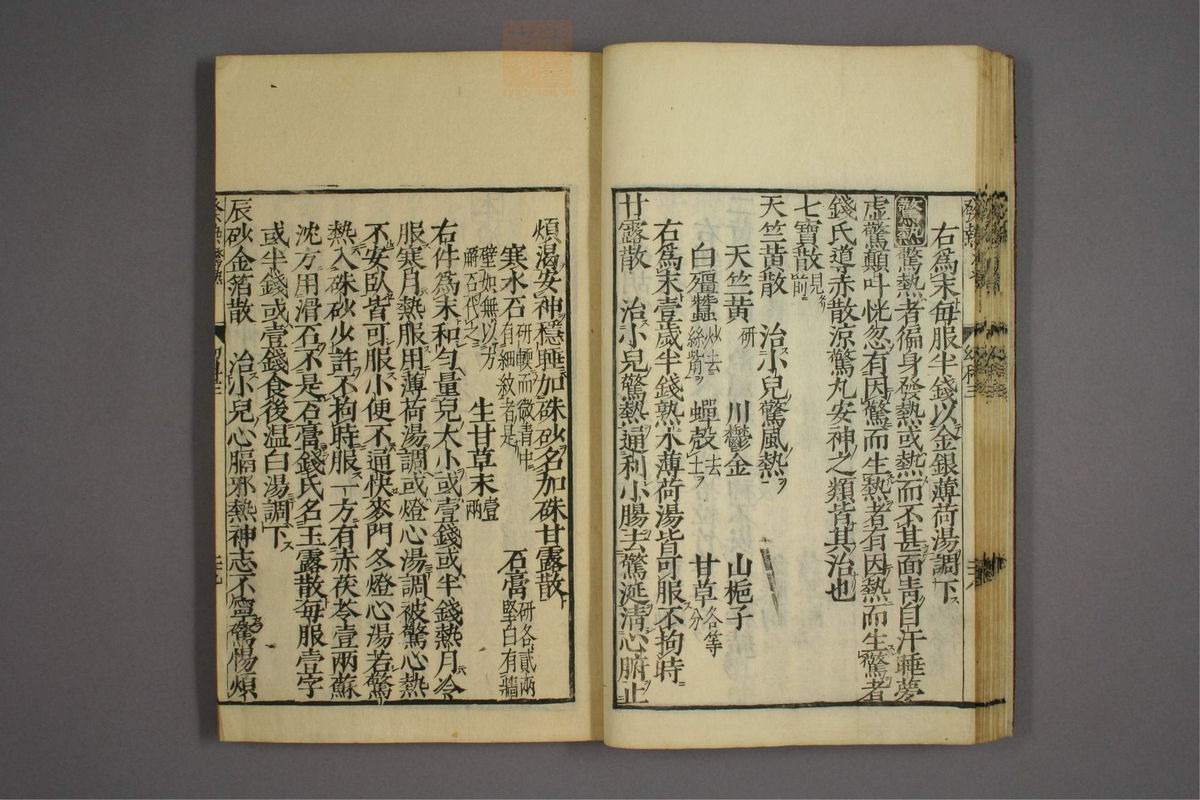 右爲末每服半錢以金銀薄荷湯調下
驚熱驚熱者徧身發熱或熱而不甚面靑自汗睡夢
虛驚顚叫恍忽有因驚而生熱者有因熱而生驚者
錢氏導赤散涼驚丸安神之類皆其治也
七寶散見前
天竺黃散　治小兒驚風熱
天竺黃研　川鬱金　山梔子
白殭蠶炒去絲觜　蟬殼去土　甘草各等分
右爲末壹歲半錢熟水薄荷湯皆可服不拘時
甘露散　治小兒驚熱通利小腸去驚涎淸心腑止
煩渴安神穩睡加硃砂名加硃甘露散
寒水石研軟而微靑中有細紋者是　石膏研各貳兩堅白有牆
壁如無以方觧石代之　生甘草末壹兩
右件爲末和勻量兒大小或壹錢或半錢熱月冷
服寒月熱服用薄荷湯調或燈心湯調被驚心熱
不安臥皆可服小便不通快麥門冬燈心湯若驚
熱入硃砂少許不拘時服一方有赤茯苓壹兩蘇
沈方用滑石不是石膏錢氏名玉露散每服壹字
或半錢或壹錢食後温白湯調下
辰砂金箔散　治小兒心膈邪熱神志不寧驚惕煩